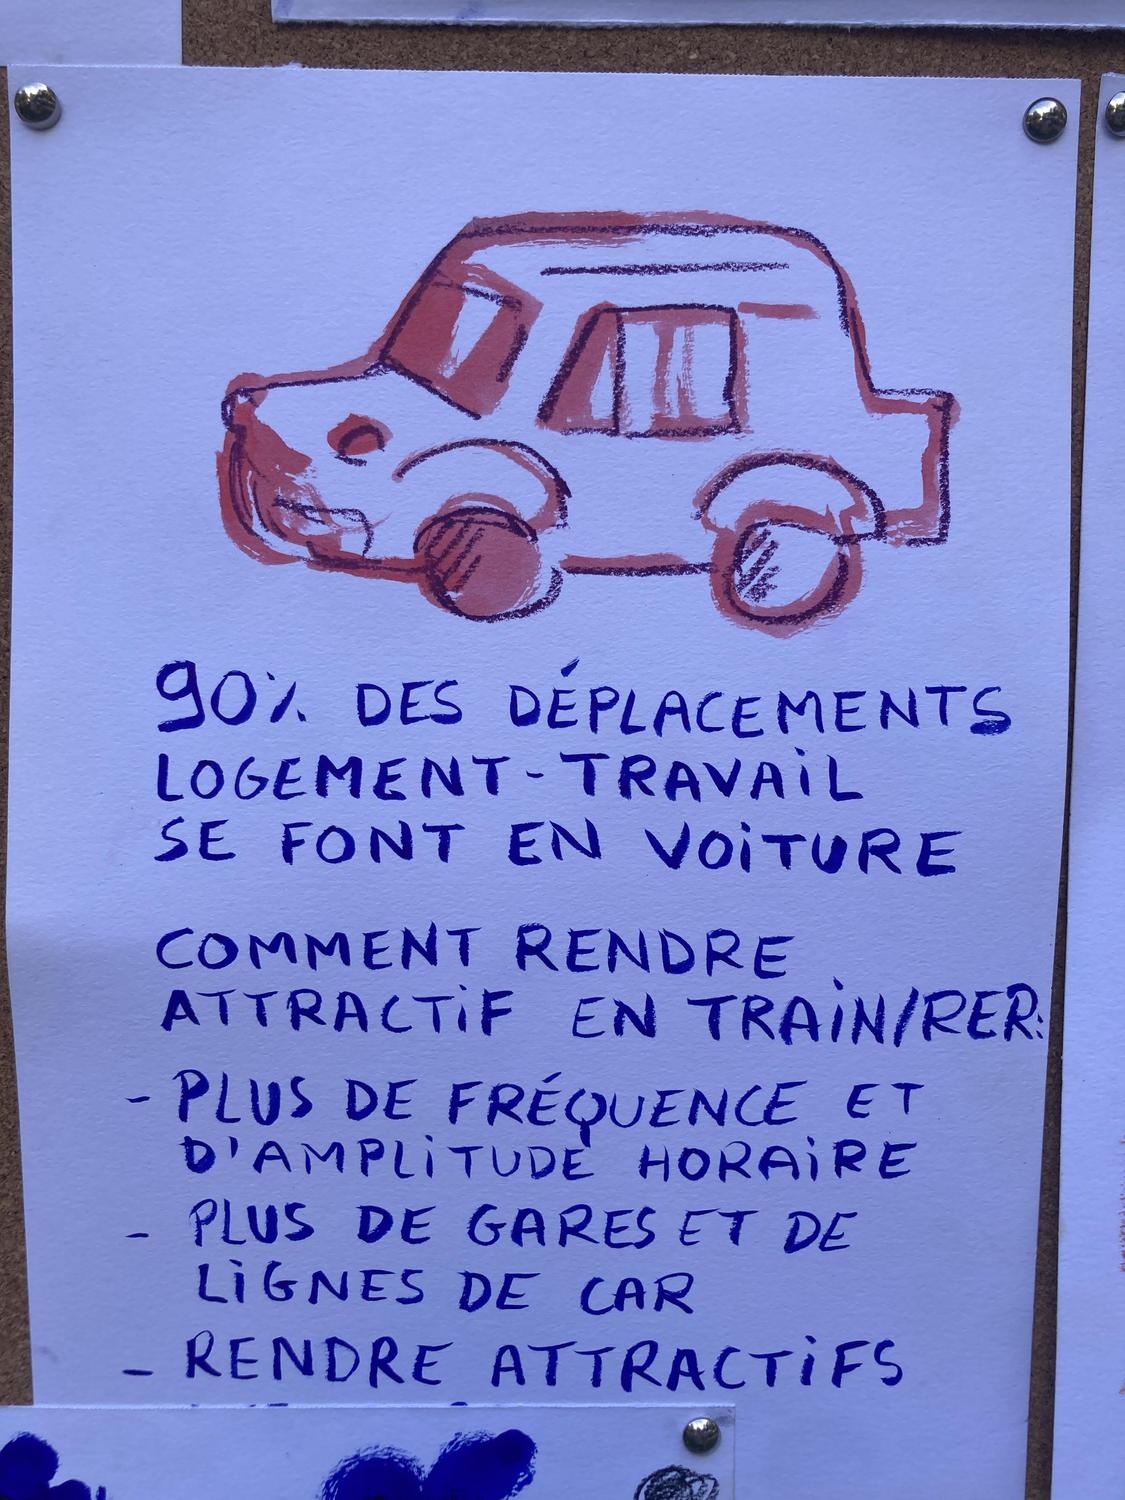 90% DES DÉPLACEMENTS
LOGEMENT-TRAVAiL
SE FONT EN VOiTURE
COMMENT RENDRE
ATTRACTiF EN TRAiN/RER:
- PLUS DE FRÉQUENCE ET
D'AMPLiTUDE HORAiRE
- PLUS DE GARES ET DE
LiGNES DE CAR
- RENDRE ATTRACTiFS